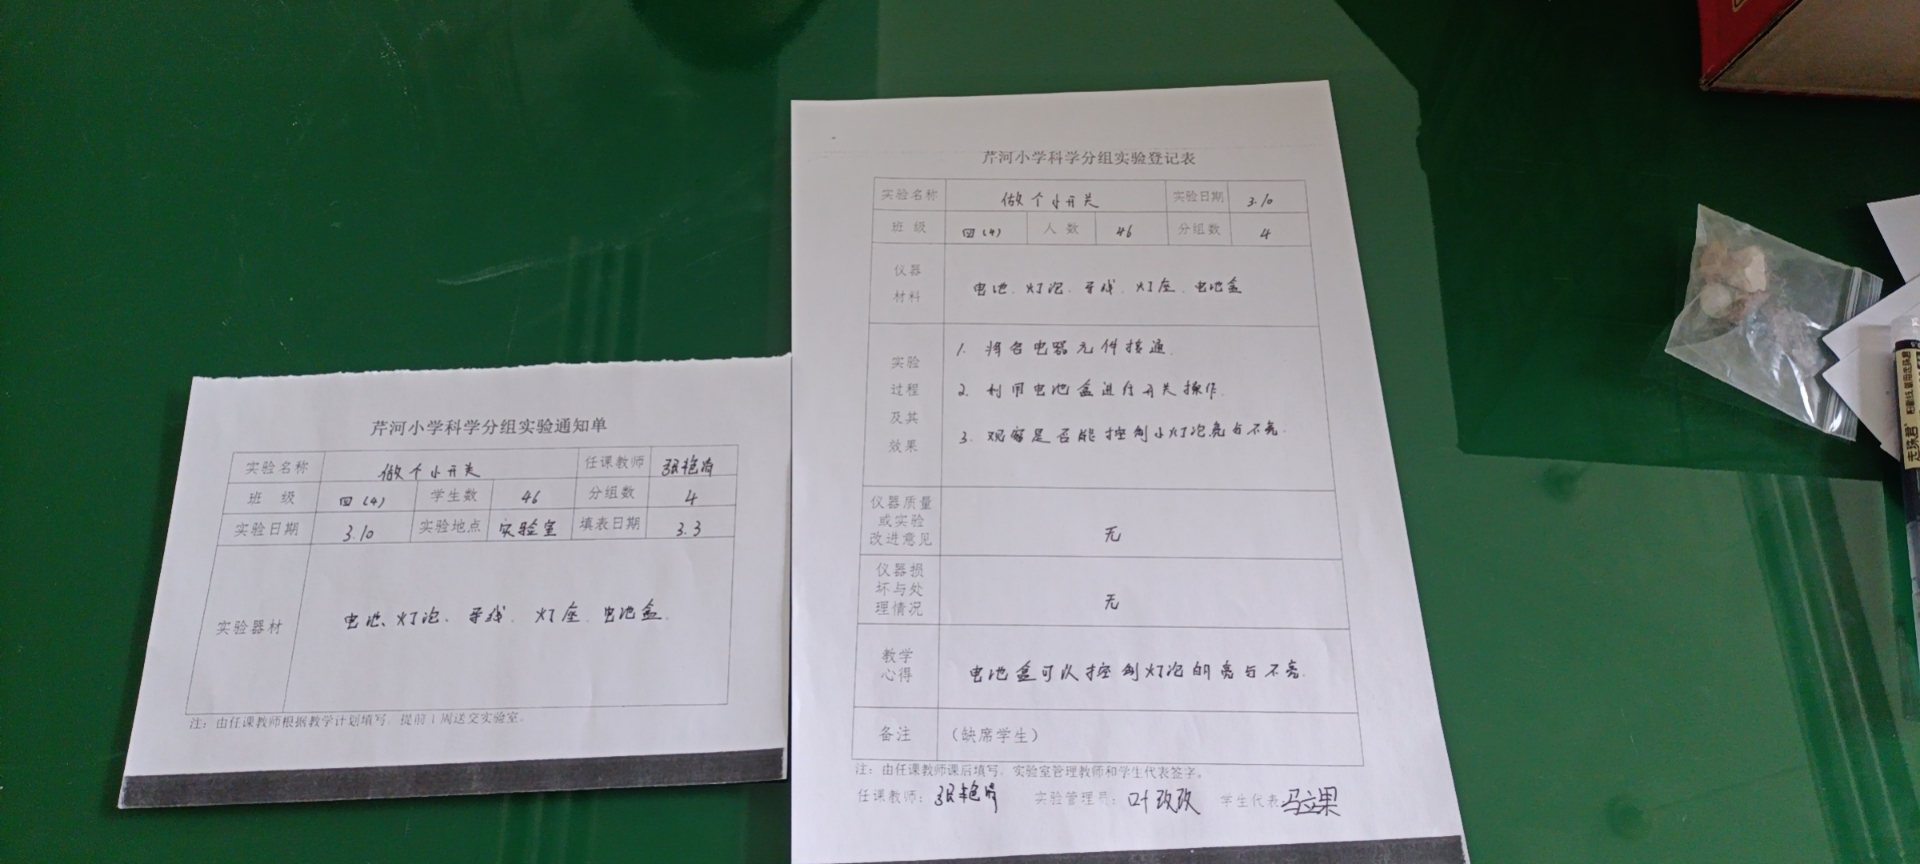 芹河小学科学分组实验通知单
实验名称 做个小开关 任课教师 张艳
班 级 四(4) 学生数 46 分组数 4
实验日期 3.10 实验地点 实验室 填表日期 3.3
实验器材 电池、灯泡、导线、灯座、电池盒.
注：由任课教师根据教学计划填写，提前1周送交实验室。
芹河小学科学分组实验登记表
实验名称 做个小开关 实验日期 3.10
班 级 四(4) 人 数 46 分组数 4
仪器
材料
电池、灯泡、导线、灯座、电池盒
实验
过程
及其
效果
1. 将各电器元件接通.
2. 利用电池盒进行开关操作.
3. 观察是否能控制小灯泡亮与不亮.
仪器质量
或实验
改进意见
无
仪器损
坏与处
理情况
无
教学
心得
电池盒可以控制灯泡的亮与不亮.
备注 （缺席学生）
注：由任课教师课后填写，实验室管理教师和学生代表签字。
任课教师：张艳 实验管理员：叶改改 学生代表
走珠君